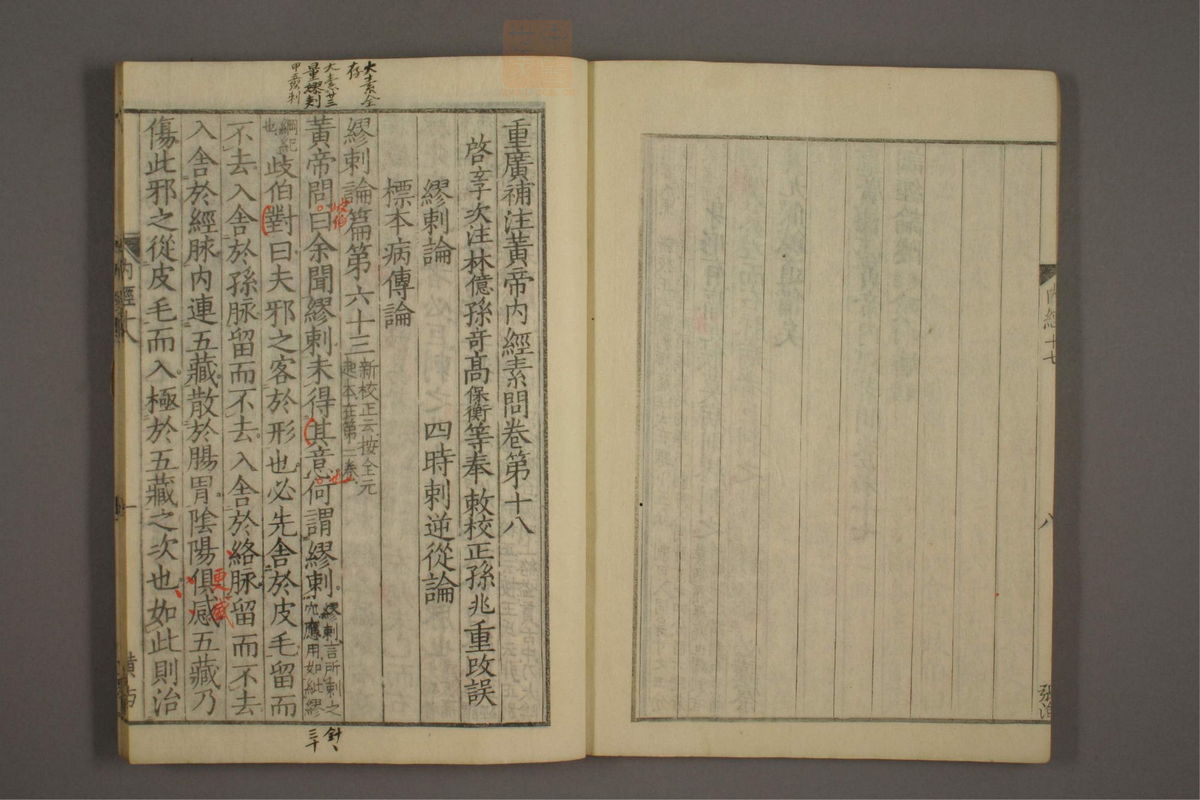 重廣補注黃帝內經素問卷第十八
啓玄子次注林億孫竒高保衡等奉敕校正孫兆重改誤
繆刺論 四時刺逆從論
標本病傳論
繆刺論篇第六十三 新校正云按全元起本在第二卷
黃帝問曰余聞繆刺未得其意何謂繆刺 繆刺言所刺之穴應用如紕繆
綱紀也 歧伯對曰夫邪之客於形也必先舍於皮毛留而
不去入舍於孫脉留而不去入舍於絡脉留而不去
入舍於經脉內連五藏散於腸胃陰陽俱感五藏乃
傷此邪之從皮毛而入極於五藏之次也如此則治
大素全
存
大素廿三
量繆刺
歧伯
更
內經十八
一
內經十七
八